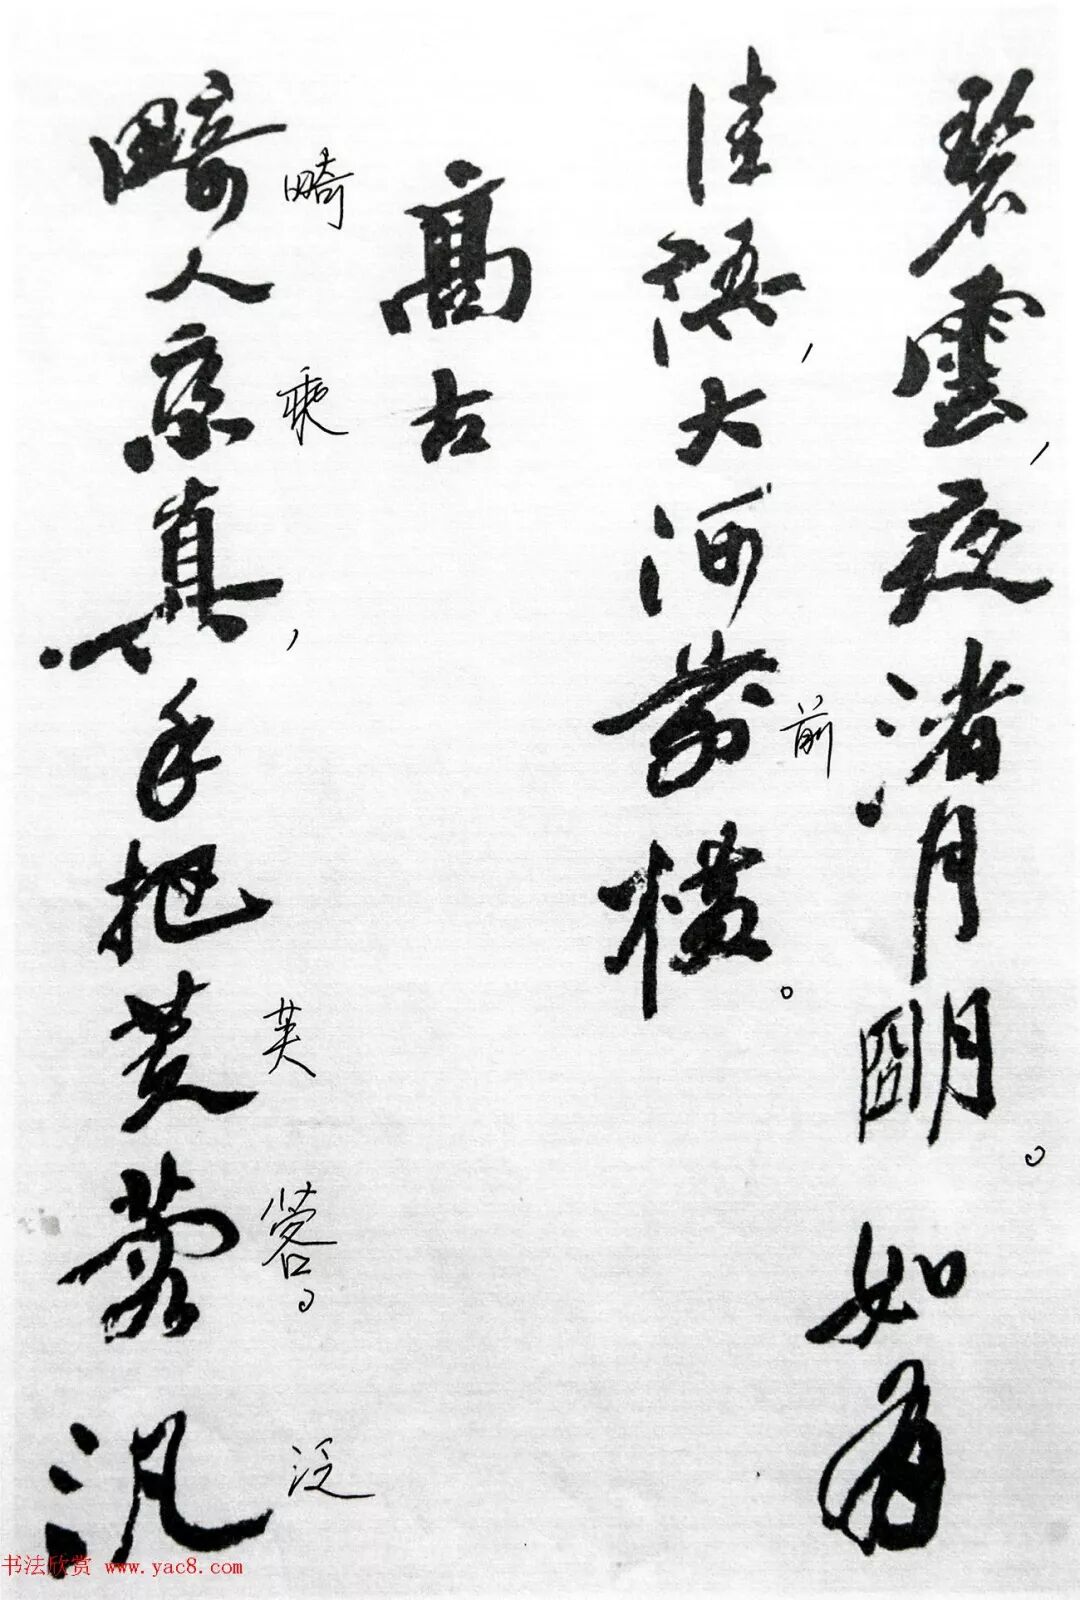 碧雲，夜渚月朙。如有
佳語，大河前橫。
高古
畸人乘真，手把芙蓉。汎
畸
乘
前
芙
蓉
泛
书法欣赏 www.yac8.com